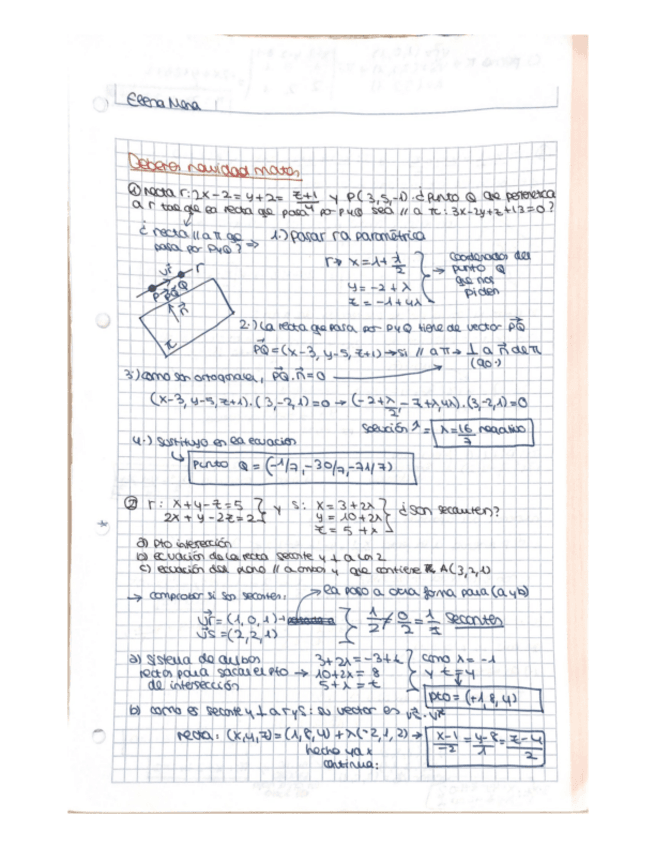 Elena Mena
Deberes navidad mates
① recta r: 2x-2 = y+2 = z+1/4 y P(3,5,-1). ¿Punto Q que pertenezca
a r tal que la recta que pasa por P y Q sea // a π: 3x-2y+z+13=0?
¿recta // a π que
pasa por P y Q? → 1.) pasar r a paramétrica
r → x = 1+λ/2
y = -2+λ
z = -1+4λ
→ coordenadas del
punto Q
que nos
piden
vr r
P PQ Q
n
π
2.) La recta que pasa por P y Q tiene de vector PQ
PQ = (x-3, y-5, z+1) → si // a π → ⊥ a n de π
(90°)
3.) como son ortogonales, PQ·n=0
(x-3, y-5, z+1)·(3,-2,1)=0 → (-2+λ/2, -7+λ, 4λ)·(3,-2,1)=0
solución λ = λ=16/7 negativo
4.) sustituyo en la ecuación
Punto Q = (-1/7, -30/7, -71/7)
② r: x+y-z=5
2x+y-2z=2 } y s: x=3+2λ
y=10+2λ
z=5+λ } ¿son secantes?
*
a) pto intersección
b) ecuación de la recta secante y ⊥ a las 2
c) ecuación del plano // a ambas y que contiene A(3,2,1)
→ comprobar si son secantes: → la paso a otra forma para (a y b)
vr = (1,0,1)
vs = (2,2,1) } 1/2 ≠ 0/2 = 1/1 secantes
a) sistema de ambas
rectas para sacar el pto →
de intersección
3+2λ = -3+t
10+2λ = 8
5+λ = t
como λ = -1
y t = 4
pto = (+1,8,4)
b) como es secante y ⊥ a r y s: su vector es vs·vr
recta: (x,y,z) = (1,8,4) + λ(-2,1,2) → x-1/-2 = y-8/1 = z-4/2
hecho ya x
continua: